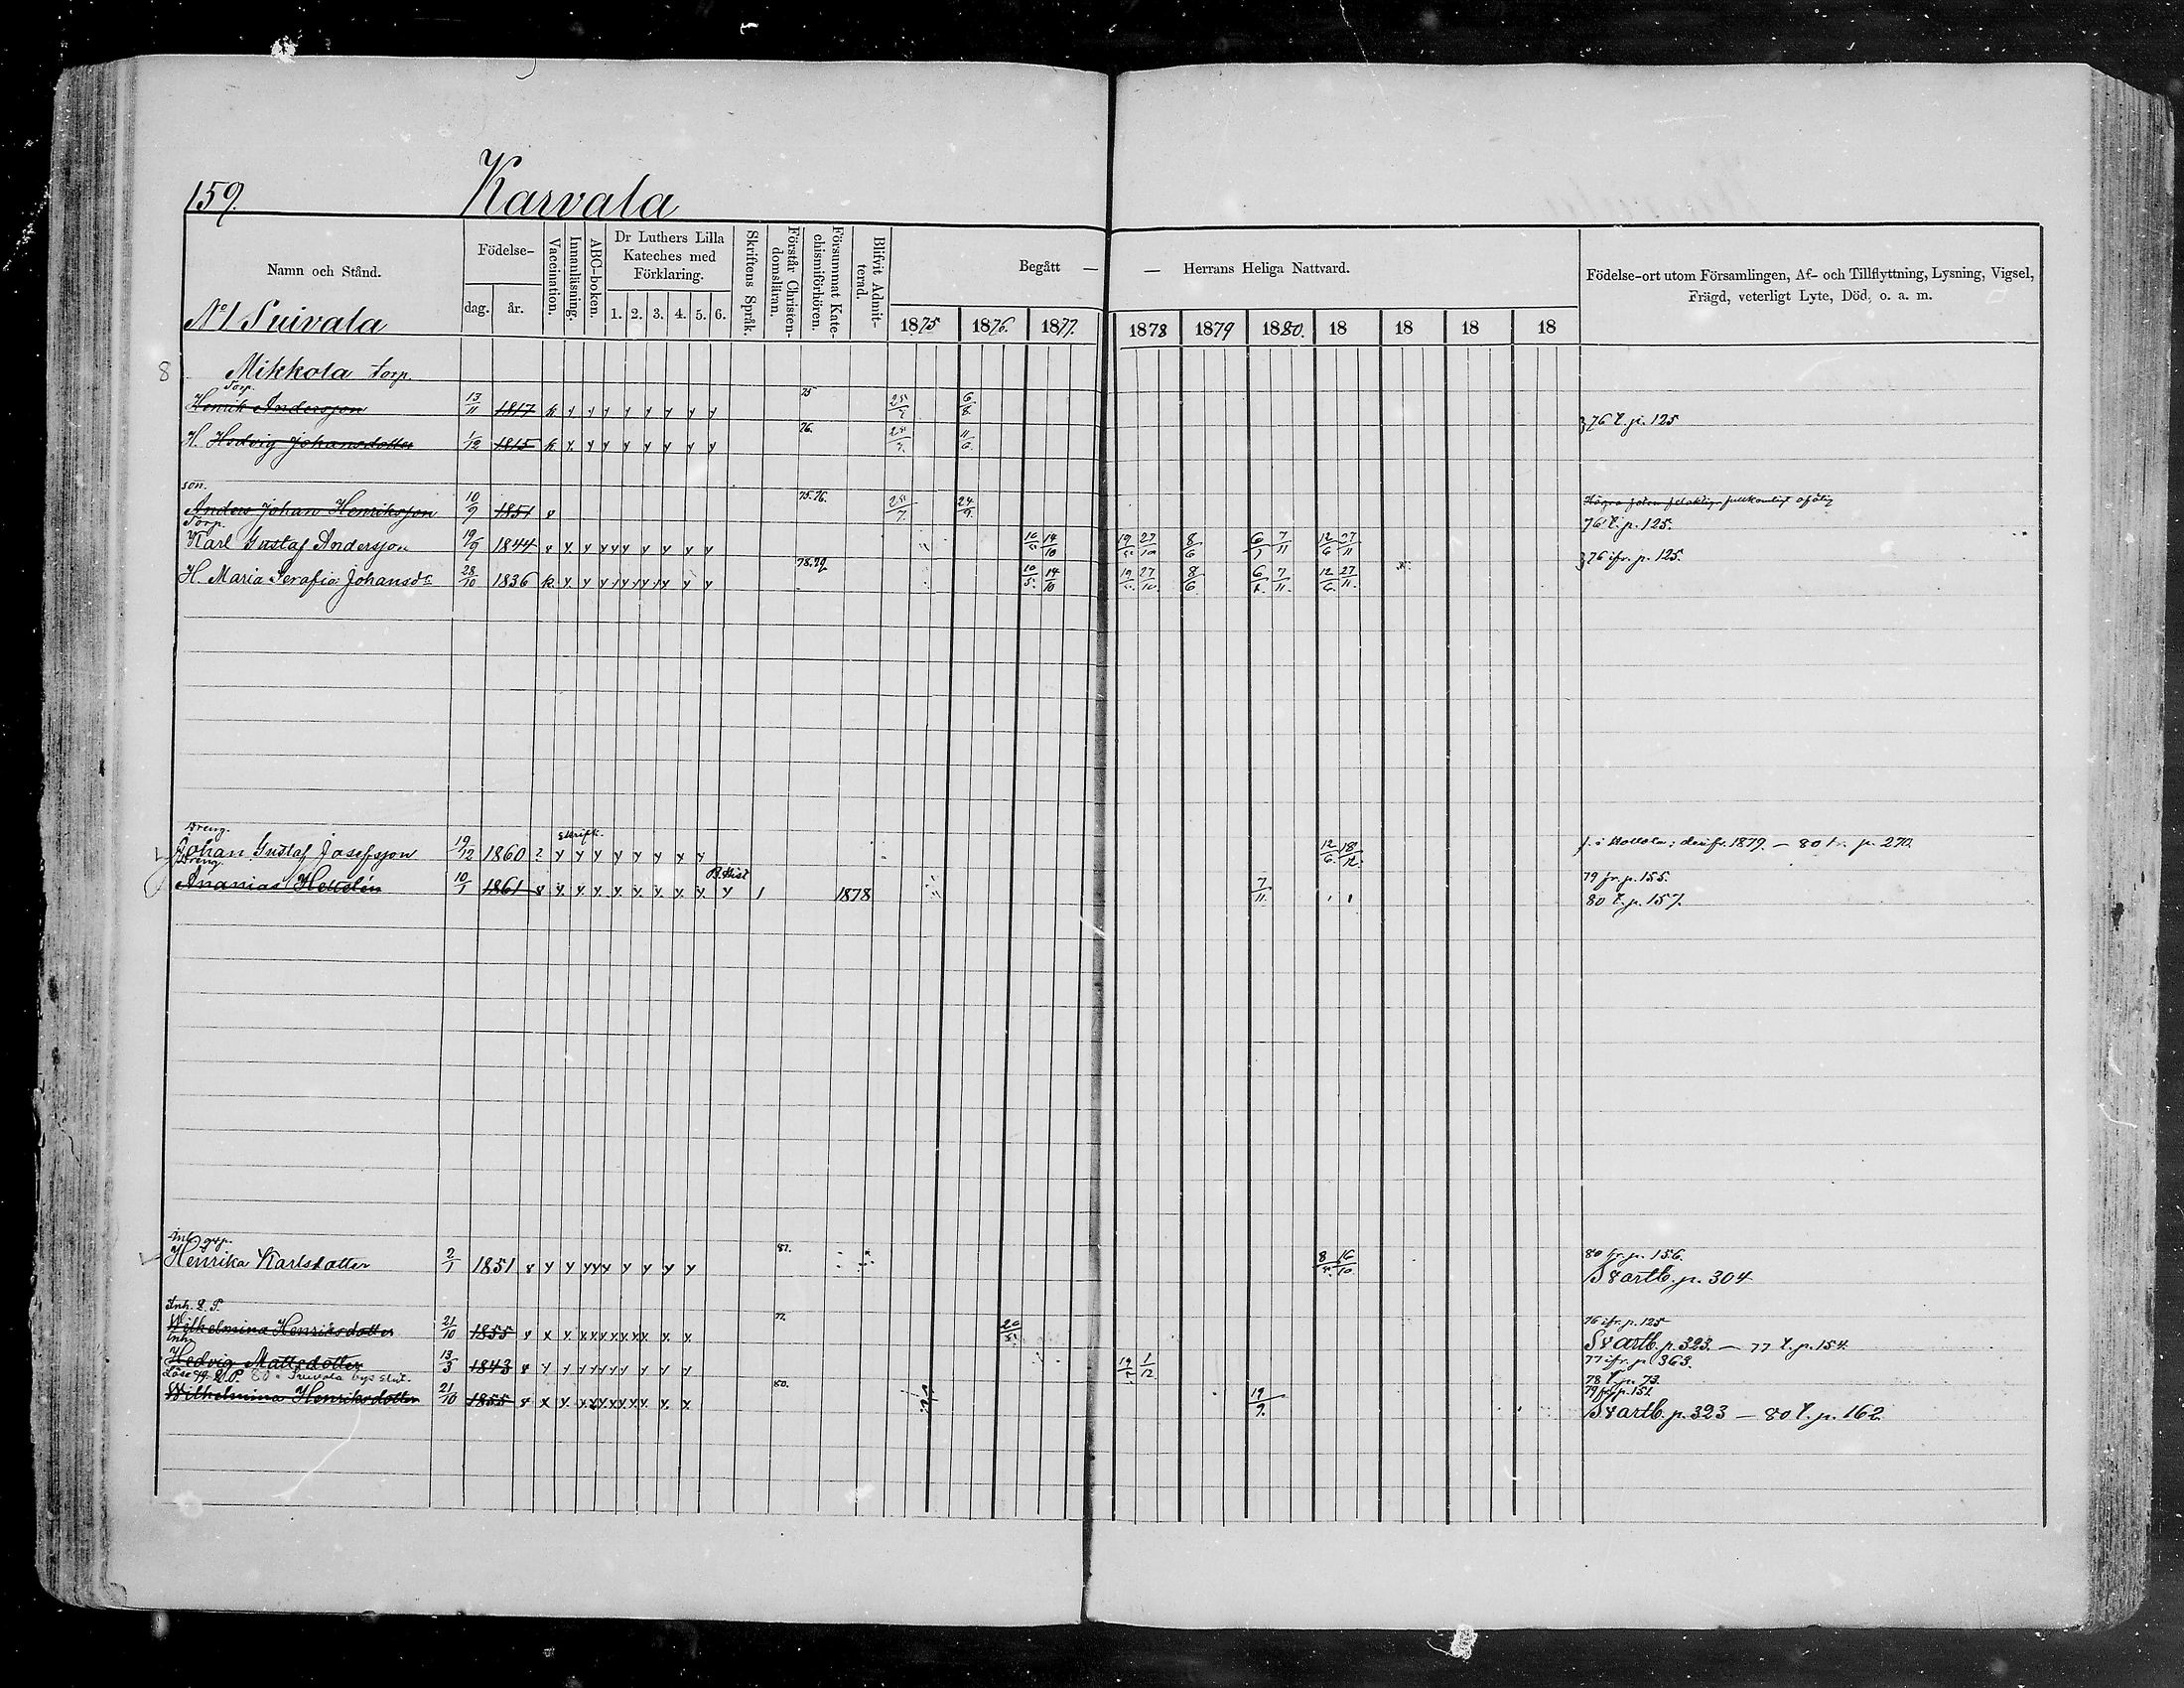 159.
Karvala
Namn och Stånd.
Födelse-
dag.
år.
Vaccination.
Innanläsning.
ABC-boken.
Dr Luthers Lilla
Kateches med
Förklaring.
1. 2. 3. 4. 5. 6.
Skriftens Språk.
Förstår Christen-
domsläran.
Försummat Kate-
chismiförhören.
Blifvit Admit-
terad.
Begått — — Herrans Heliga Nattvard.
1875 1876. 1877. 1878 1879 1880. 18 18 18 18
Födelse-ort utom Församlingen, Af- och Tillflyttning, Lysning, Vigsel,
Frägd, veterligt Lyte, Död, o. a. m.
No 1
8 Mikkola torp.
Torp.
Henrik Andersson 13/11 1817 k y y y y y y y y 75 6/8
H. Hedvig Johansdotter 1/12 1815 k y y y y y y y y 76. 11/6. } 76 t. p. 125
son.
Anders Johan Henriksson 10/9 1851 v 75.76. 24/9.
76 t. p. 125.
Torp.
Karl Gustaf Andersson 19/9 1844 v y y y y y y y y 14/10 27/10 8/6 7/11 12/6 27/11 } 76 ifr. p. 125.
H. Maria Serafia Johansdr 28/10 1836 k y y y y y y y y 78.79. 10/5. 14/10 27/10. 8/6 7/11. 12/6. 27/11.
Dreng.
Skrift.
Johan Gustaf Josefsson 19/12 1860 ? y y y y y y y y 12/6. 18/12. f. i Hollola; derifr. 1879. — 80 p. 270.
Dreng.
B. Hist
Ananias Hellelén 10/1 1861 v y. y. y. y. y. y. y. y. y 1 1878 7/11. 79 fr. p. 155.
80 t. p. 157.
Henrika Karlsdotter 2/1 1851 v y y y y y y y y y 81. 16/10. 80 fr. p. 156.
Svartb. p. 304
Inh.
Wilhelmina Henriksdotter 21/10 1855 v x y. x x x x x x x y. 77. 20/5. 76 ifr. p. 125
Svartb. p. 323. — 77 t. p. 154
Inh.
Hedvig Mattsdotter 13/3 1843 v y y y y y y y y y 1/12 77 ifr. p. 363.
78 t. p. 73.
Wilhelmina Henriksdotter 21/10 1855 v x y. x x x x x x y. y. 80. 19/9. 79 fr. p. 151.
Svartb. p. 323 — 80 t. p. 162